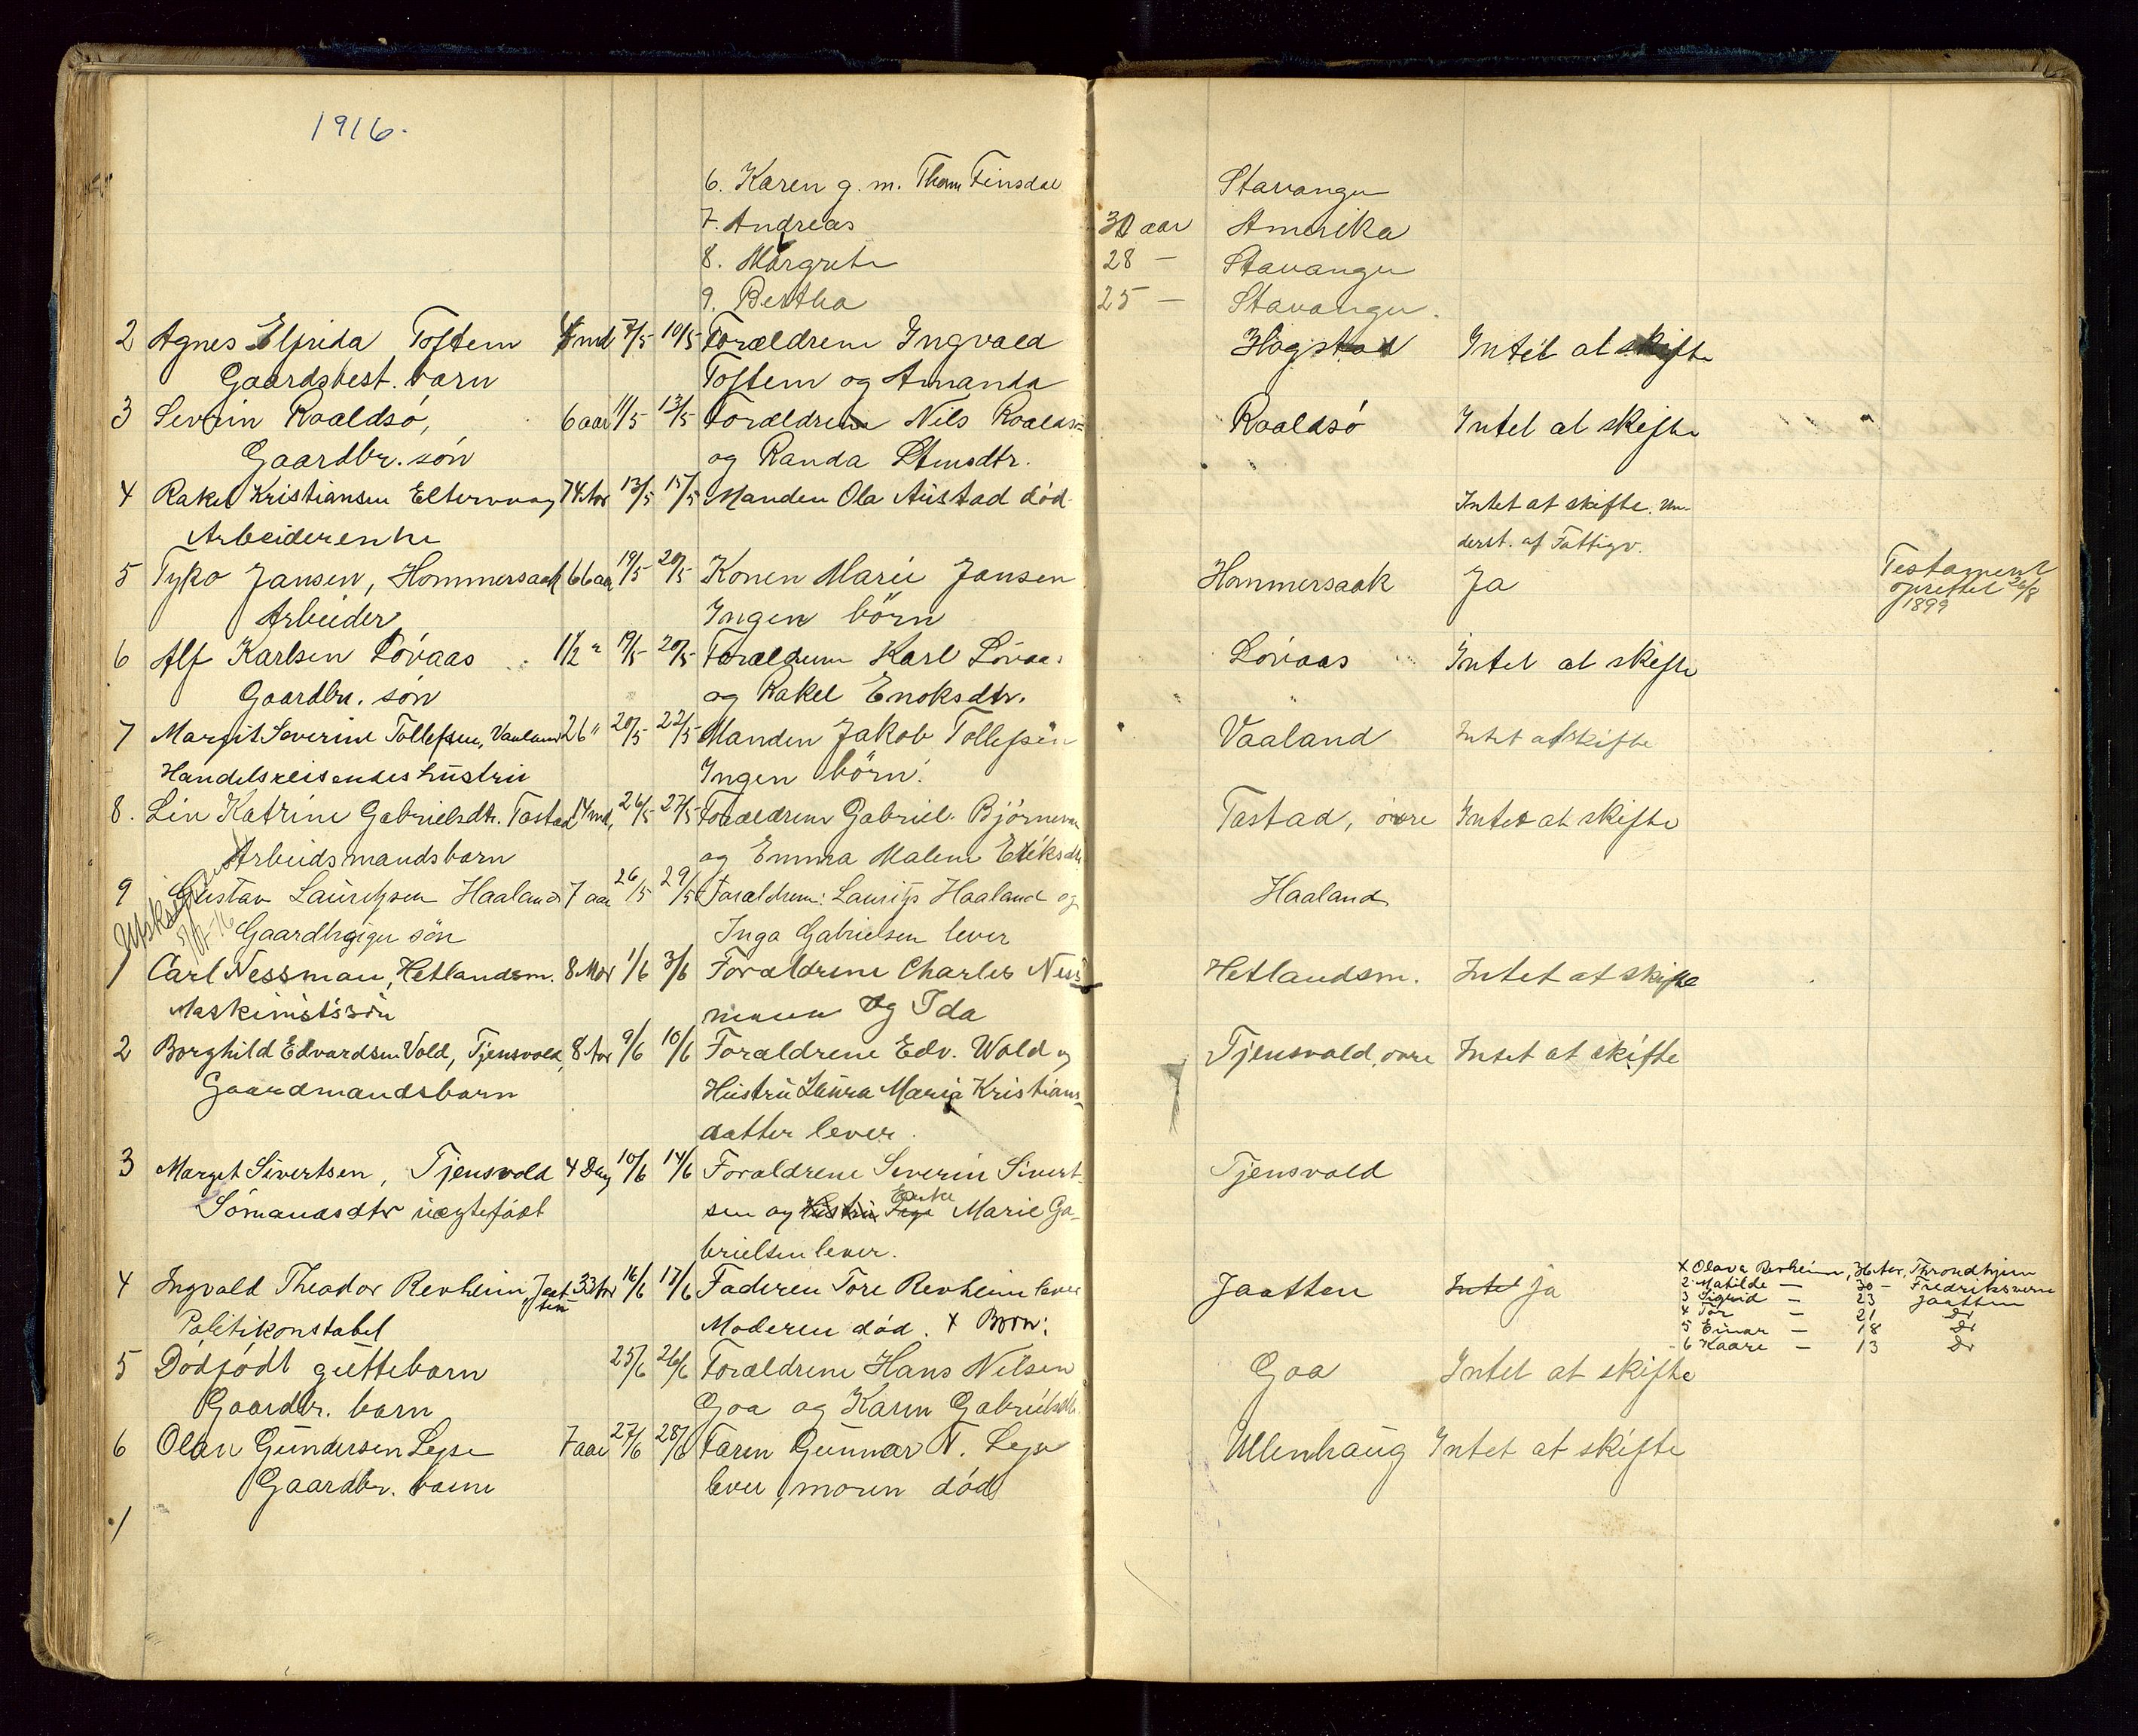 1916.
6. Karen g. m. Thom Finsdal Stavanger
7. Andreas 30 aar Amerika
8. Margrete 28 — Stavanger
9. Bertha 25 — Stavanger.
2 Agnes Elfrida Toftem md 7/5 10/5 Forældrene Ingvald Hogstad Intet at skifte
Gaardsbest. barn Toftem og Amanda
3 Sevrin Roaldsø, 6 aar 11/5 13/5 Forældrene Nils Roaldsø Roaldsø Intet at skifte
Gaardbr. søn og Randa Stensdtr.
4 Rakel Kristiansen Eltervaag 74 Aar 13/5 15/5 Manden Ola Austad død Intet at skifte. Un-
Arbeiderenke derst. af Fattigv.
5 Tyko Jansen, Hommersaak 66 aar 19/5 20/5 Konen Marie Jansen Hommersaak Ja Testament
Arbeider Ingen børn oprettet 26/8
1899
6 Alf Karlsen Løvaas 1 1/2 " 19/5 20/5 Forældrene Karl Løvaas Løvaas Intet at skifte
Gaardbr. søn og Rakel Enoksdtr.
7 Margit Severine Tollefsen, Vaaland 26 " 20/5 22/5 Manden Jakob Tollefsen Vaaland Intet at skifte
Handelsreisendes hustru Ingen børn.
8. Lin Katrine Gabrielsdtr. Tastad 14 md. 26/5 27/5 Forældrene Gabriel Tastad, øvre Intet at skifte
Arbeidsmandsbarn og Emma Malene Eriksdtr
9 Gustav Lauritzsen Haaland 7 aar 26/5 29/5 Forældrene: Lauritz Haaland og Haaland
Gaardbruger søn Inga Gabrielsen lever
1 Carl Nessman, Hetlandsm. 8 Mdr 1/6 3/6 Forældrene Charles Ness- Hetlandsm. Intet at skifte
Maskinistsøn mann og Ida
2 Borghild Edvardsen Vold, Tjensvold, 8 Aar 9/6 10/6 Forældrene Edv. Wold og Tjensvold, øvre Intet at skifte
Gaardmandsbarn Hustru Laura Maria Kristians-
datter lever.
3 Marget Sivertsen, Tjensvold 4 Dag 10/6 14/6 Forældrene Severin Sivert- Tjensvold
Sømandsdtr uægtefødt sen og Hustru Enke Marie Ga-
brielsen lever.
4 Ingvald Theodor Revheim, Jaat- 33 Aar 16/6 17/6 Faderen Tore Revheim lever Jaatten Intet ja x Olava Revheim, 36 Aar, Throndhjem
ten
Politikonstabel Moderen død. x Børn:
2 Matilde — 30 — Fredriksvern
3 Sigrid — 23 Jaatten
4 Tor — 21 Do
5 Einar — 18 Do
6 Kaare — 13 Do
5 Dødfødt guttebarn 25/6 26/6 Forældrene Hans Nilsen Goa Intet at skifte
Gaardbr. barn Goa og Karen Gabrielsdtr.
6 Olan Gundersen Leps 7 aar 27/6 28/6 Faren Gunnar N. Ullenhaug Intet at skifte
Gaardbr. barn lever, moren død
1